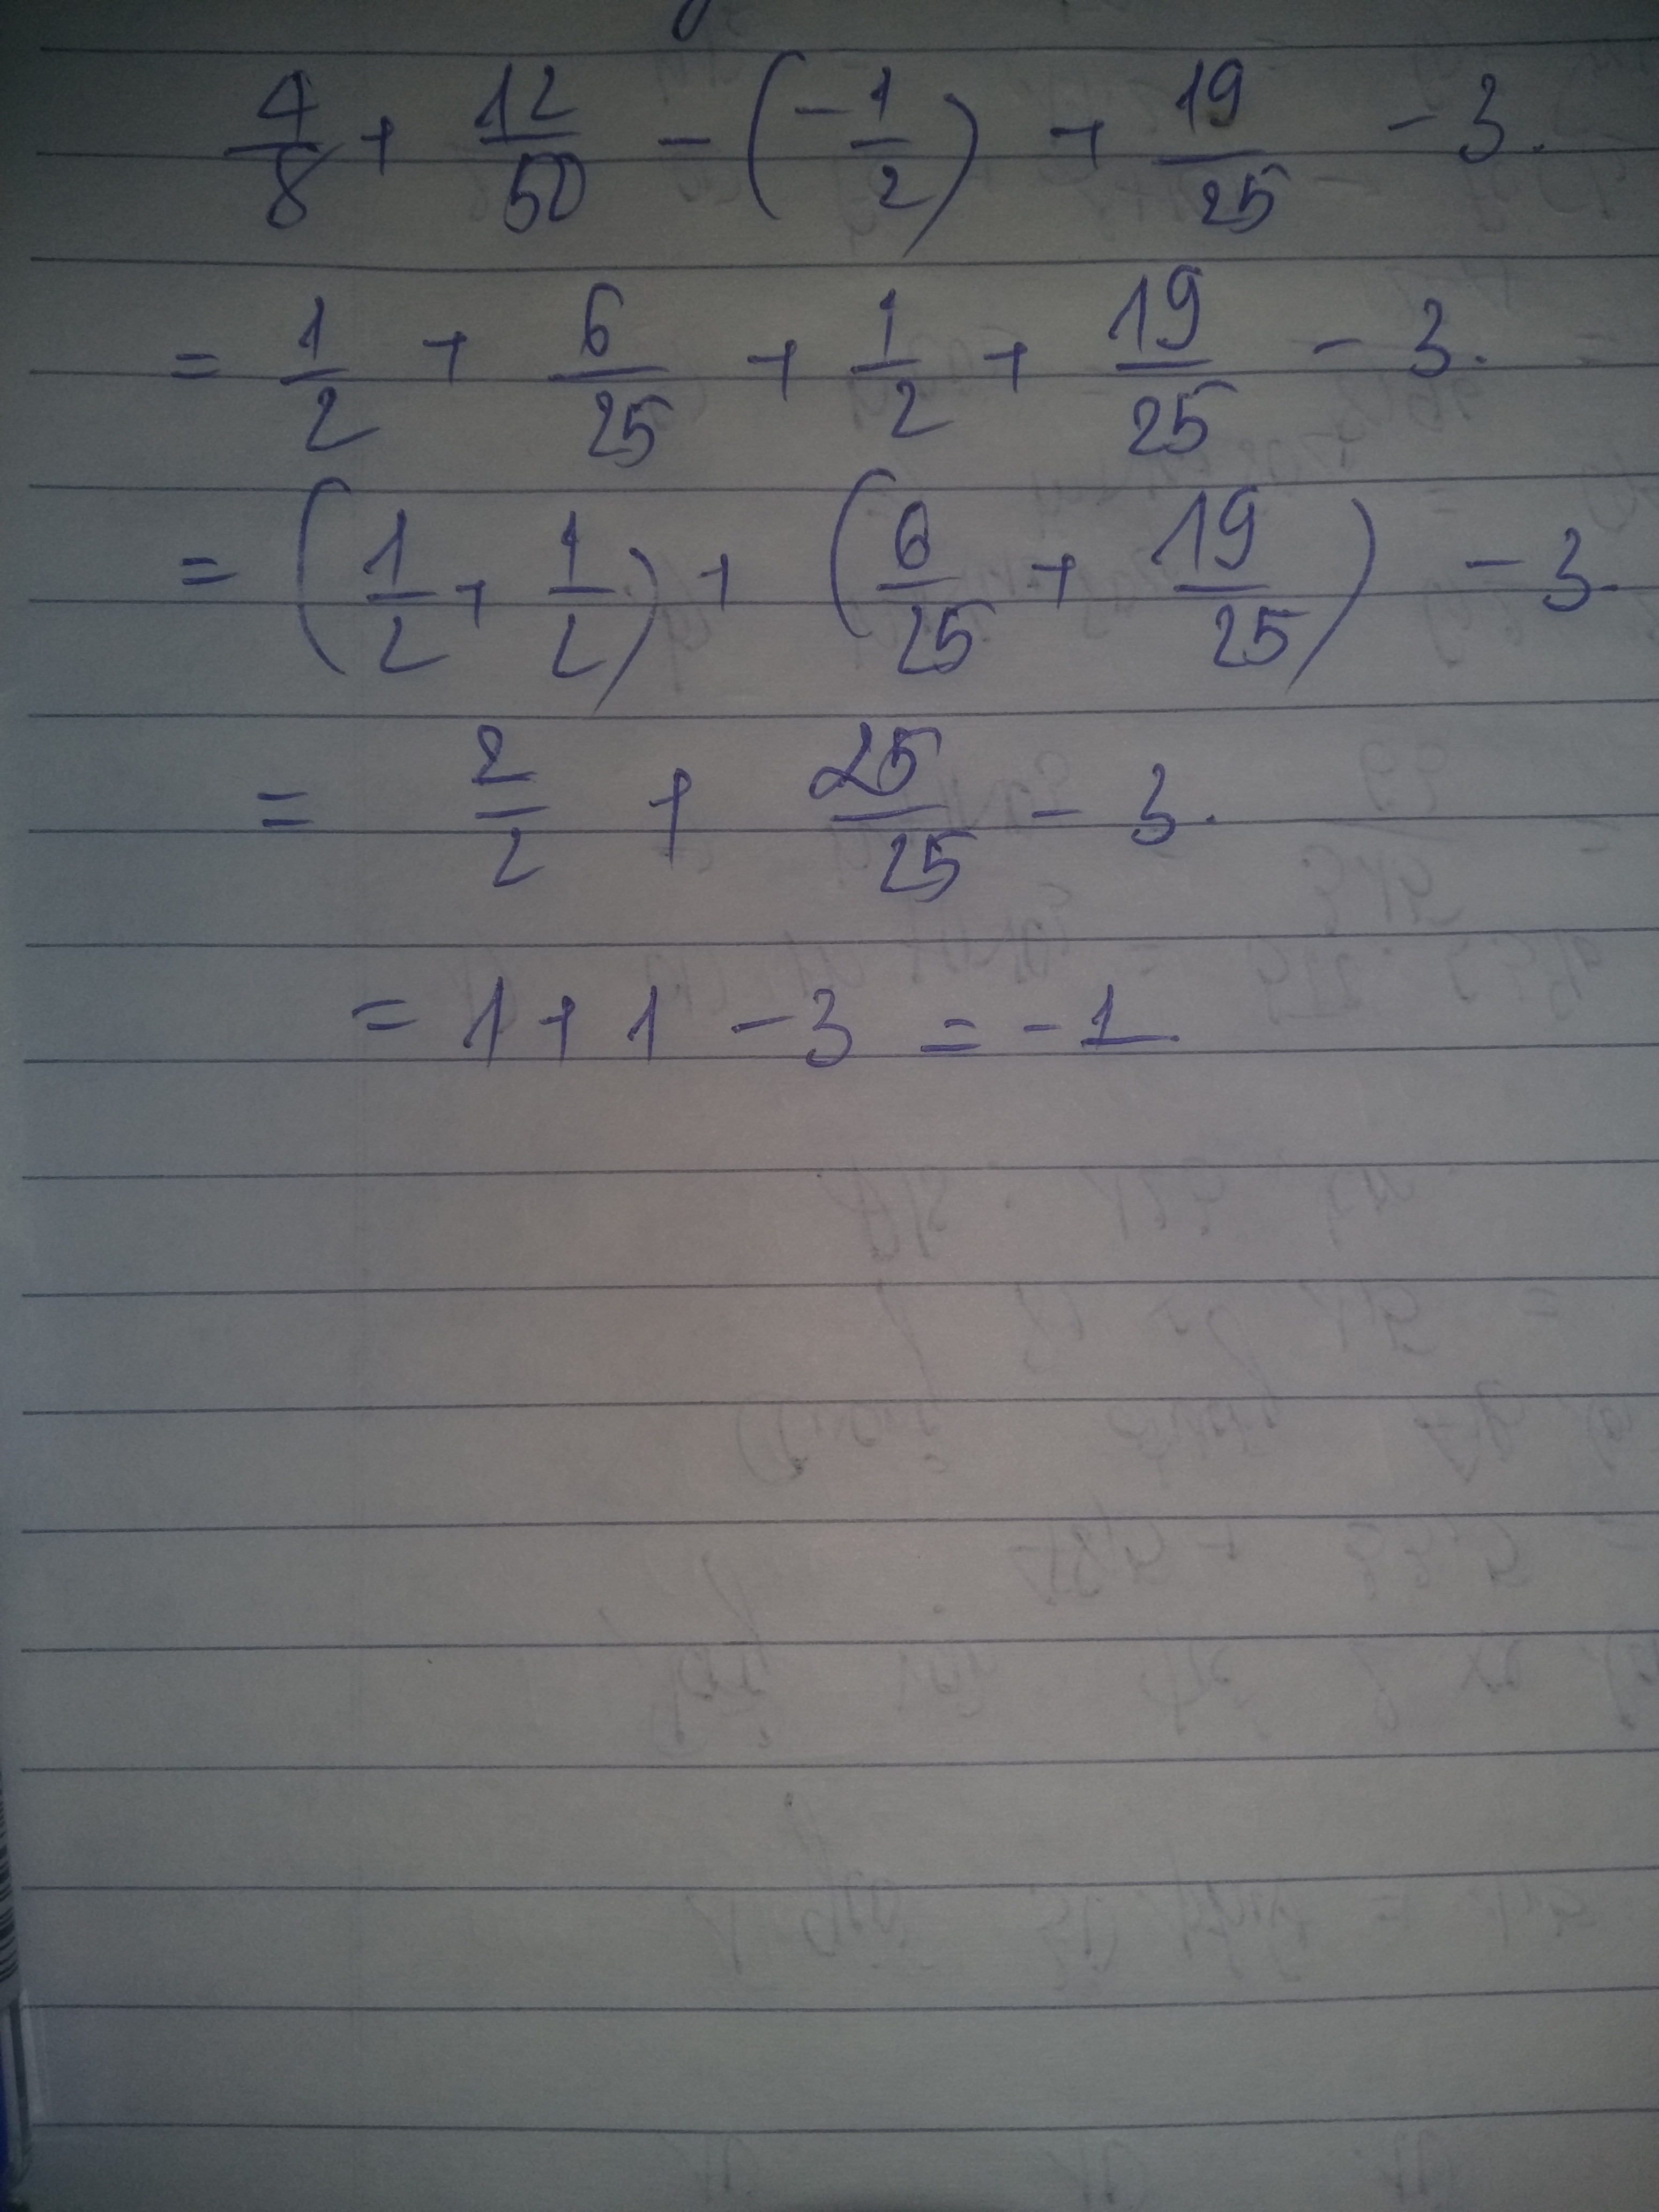 4/8 + 12/50 - (-1/2) + 19/25 - 3.
= 1/2 + 6/25 + 1/2 + 19/25 - 3.
= (1/2 + 1/2) + (6/25 + 19/25) - 3.
= 2/2 + 25/25 - 3.
= 1 + 1 - 3 = -1